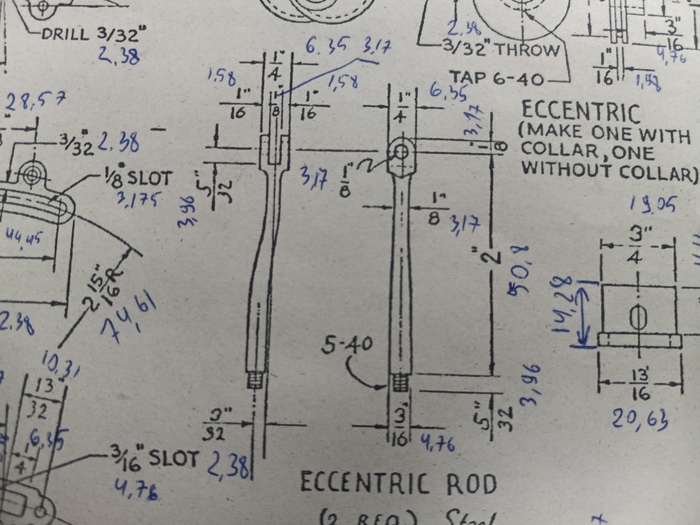 DRILL 3/32"
2,38
28,57
3/32" 2.38
1/8" SLOT
3,175
44,45
2 15/16" R
74,61
2.38
10,31
13/32
6,35
1/4
3/16" SLOT
4,76
1/4"
6,35 3,17
1,58 1,58
1/16" 1/8 1/16"
5"/32
3,96
3"/32
2,38
6,35
1/4"
3,17
1/8
3,17 1"/8
1"/8 3,17
2"
50,8
5-40
3"/16
4,76
5"/32
3,96
ECCENTRIC ROD
(2 REQ.) Steel
2.38
3/32" THROW
TAP 6-40
3"/16
4,76
1"/16
1,58
ECCENTRIC
(MAKE ONE WITH
COLLAR, ONE
WITHOUT COLLAR)
19,05
3"/4
14,28
13"/16
20,63